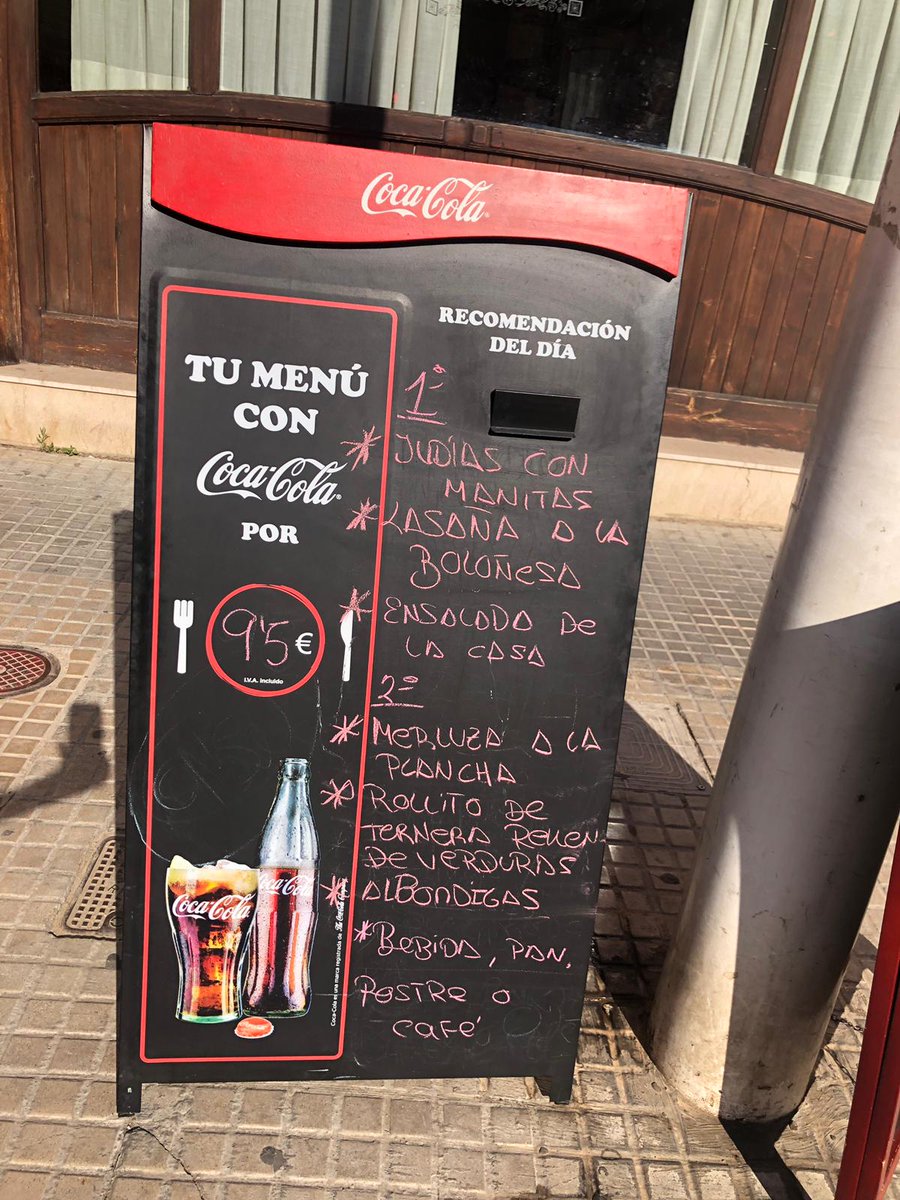 Coca-Cola
TU MENÚ
CON
Coca-Cola
POR
9'5 €
I.V.A. incluido
Coca-Cola
Coca-Cola
Coca-Cola es una marca registrada de The Coca-Cola Company
RECOMENDACIÓN
DEL DÍA
1º
* JUDÍAS CON
MANITAS
* LASAÑA A LA
BOLOÑESA
* ENSALADA DE
LA CASA
2º
* MERLUZA A LA
PLANCHA
* ROLLITO DE
TERNERA RELLEN
DE VERDURAS
* ALBONDIGAS
* BEBIDA, PAN,
POSTRE O
CAFÉ